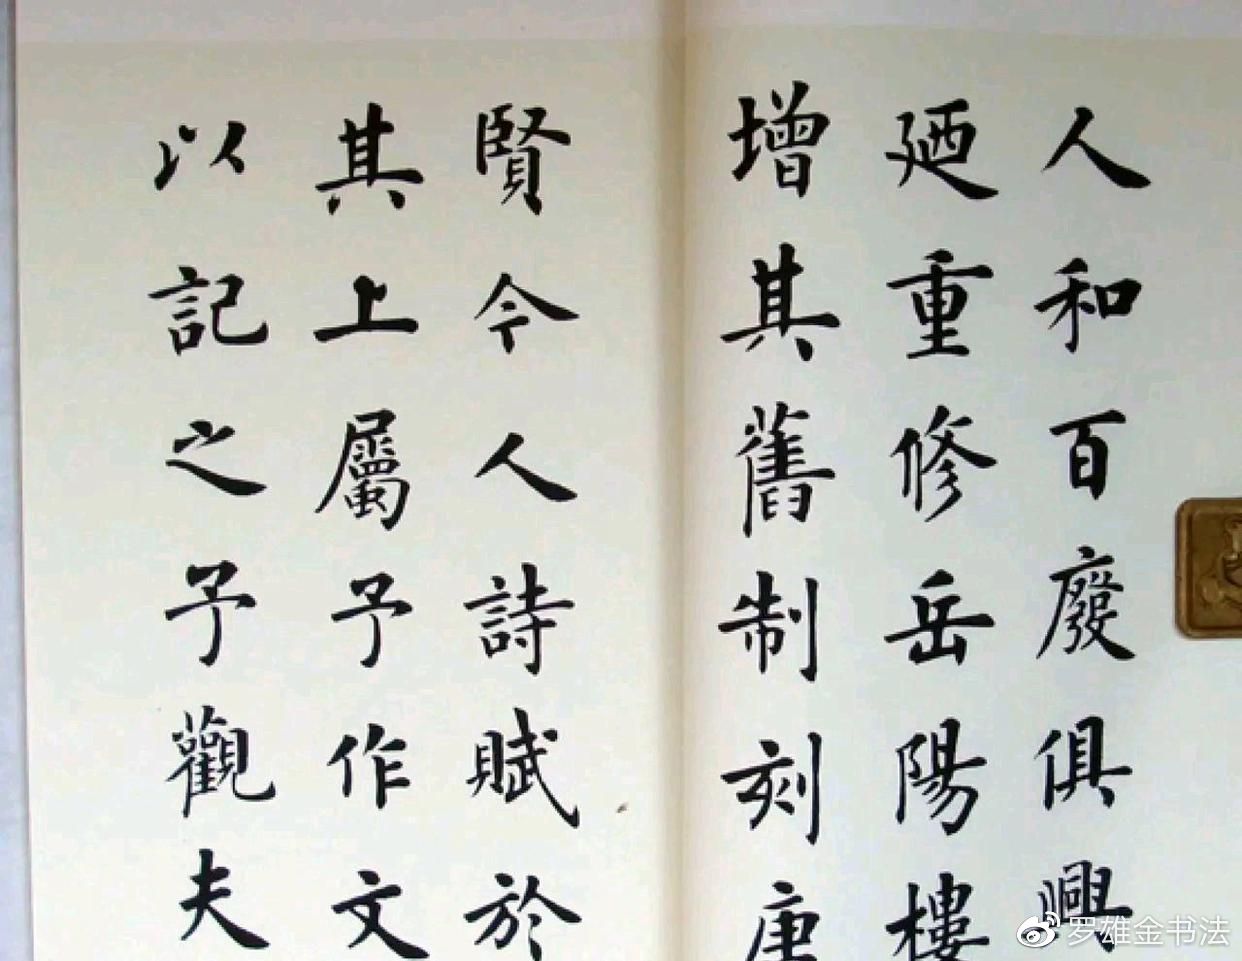 人和百廢俱興
廼重修岳陽樓
增其舊制刻唐
賢今人詩賦於
其上屬予作文
以記之予觀夫
罗雄金书法